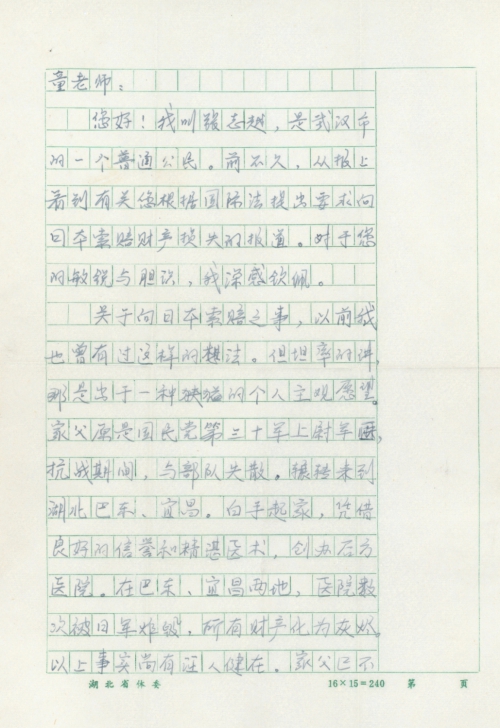 童老师：
您好！我叫张志越，是武汉市
的一个普通公民。前不久，从报上
看到有关您根据国际法提出要求向
日本索赔财产损失的报道。对于您
的敏锐与胆识，我深感钦佩。
关于向日本索赔之事，以前我
也曾有过这样的想法。但坦率的讲，
那是出于一种狭隘的个人主观愿望。
家父原是国民党第三十军上尉军医，
抗战期间，与部队失散。辗转来到
湖北巴东、宜昌。白手起家，凭借
良好的信誉和精湛医术，创办
医院。在巴东、宜昌两地，医院数
次被日军炸毁，所有财产化为灰烬。
以上事实尚有证人健在。家父已不
湖北省体委 16×15=240 第 页